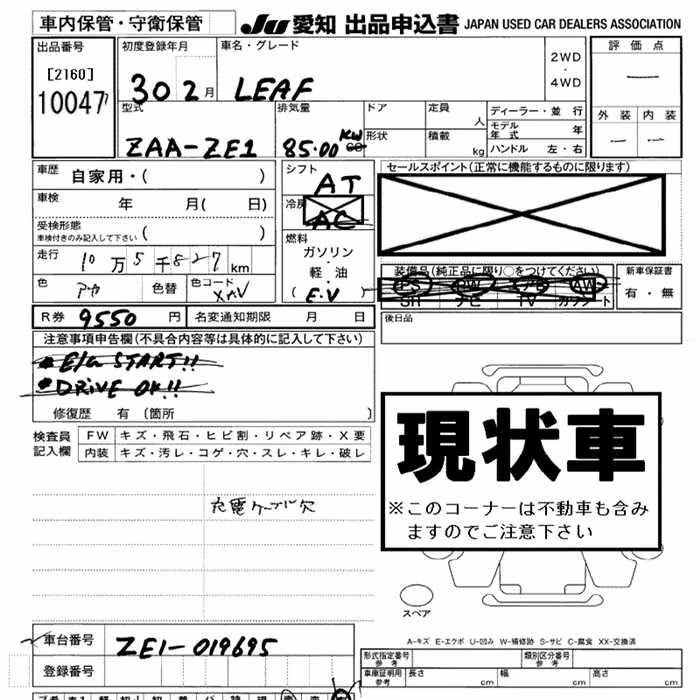 車内保管・守衛保管 JU 愛知 出品申込書 JAPAN USED CAR DEALERS ASSOCIATION
出品番号 初度登録年月 車名・グレード 2WD・4WD 評価点
[2160] 30 2月 LEAF —
10047
型式 排気量 ドア 定員 人 ディーラー・並行 外装 内装
ZAA-ZE1 85.00 KW cc 形状 積載 kg モデル年式 年 — —
ハンドル 左・右
車歴 自家用・( ) シフト AT セールスポイント(正常に機能するものに限ります)
車検 年 月( 日) 冷房 AC
受検形態 ( )
車検付きのみ記入して下さい
燃料 ガソリン・軽油・(E.V)
走行 10万5千827km
装備品(純正品に限り○をつけてください) 新車保証書
PS PW エアB AW 有・無
SR ナビ TV カワシート
色 アカ 色替 色コード XAV
R券 9550円 名変通知期限 月 日 後日品
注意事項申告欄(不具合内容等は具体的に記入して下さい)
* E/G START!!
* DRIVE OK!!
修復歴 有〔箇所 〕
検査員記入欄 FW キズ・飛石・ヒビ割・リペア跡・X要
内装 キズ・汚レ・コゲ・穴・スレ・キレ・破レ
充電ケーブル欠
現状車
※このコーナーは不動車も含み
ますのでご注意下さい
スペア
A-キズ E-エクボ U-凹み W-補修跡 S-サビ C-腐食 XX-交換済
車台番号 ZE1-019695
登録番号
形式指定番号 参考 類別区分番号 参考
車庫証明用 参考 長さ cm 幅 cm 高さ cm